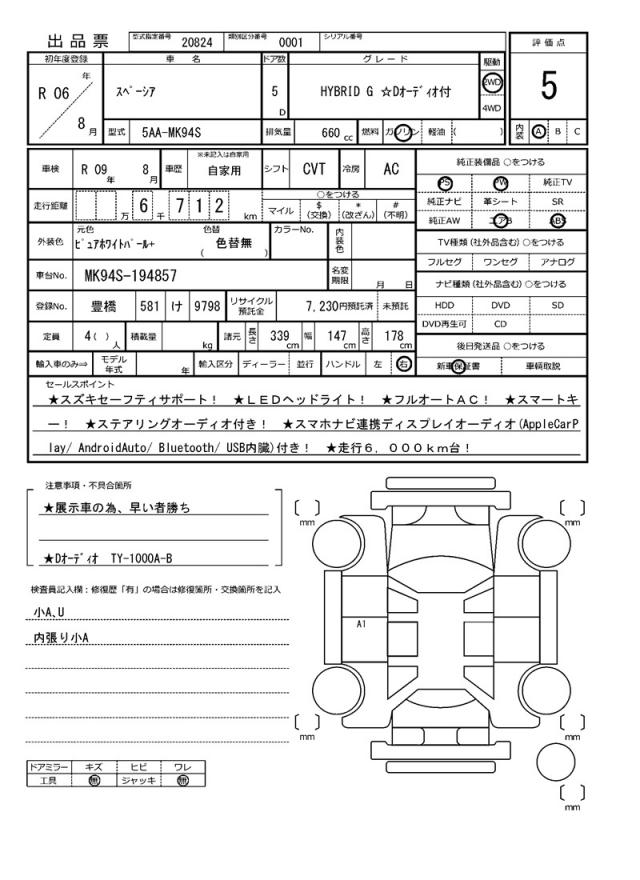 出品票 型式指定番号 20824 類別区分番号 0001 シリアル番号
初年度登録 車名 ドア数 グレード 駆動 評価点
R 06 年 8 月 スペーシア 5 D HYBRID G ☆Dオーディオ付 2WD 4WD 5
型式 5AA-MK94S 排気量 660 cc 燃料 ガソリン 軽油 ( ) 内装 A B C
車検 R 09 年 8 月 車歴 ※未記入は自家用 自家用 シフト CVT 冷房 AC 純正装備品 ○をつける
PS PW 純正TV
走行距離 万 6 千 7 1 2 km ○をつける
マイル $ (交換) * (改ざん) # (不明)
純正ナビ 革シート SR
純正AW エアB ABS
外装色 元色 ピュアホワイトパール+ 色替 ( 色替無 ) カラーNo. 内装色
TV種類 (社外品含む) ○をつける
フルセグ ワンセグ アナログ
車台No. MK94S-194857 名変期限 月 日
ナビ種類 (社外品含む) ○をつける
登録No. 豊橋 581 け 9798 リサイクル預託金 7,230円預託済 未預託
HDD DVD SD
DVD再生可 CD
定員 4( ) 人 積載量 kg 諸元 長さ 339 cm 幅 147 cm 高さ 178 cm
後日発送品 ○をつける
輸入車のみ⇒ モデル年式 年 輸入区分 ディーラー 並行 ハンドル 左 右
新車保証書 車輌取説
セールスポイント
★スズキセーフティサポート! ★LEDヘッドライト! ★フルオートAC! ★スマートキ
ー! ★ステアリングオーディオ付き! ★スマホナビ連携ディスプレイオーディオ(AppleCarP
lay/ AndroidAuto/ Bluetooth/ USB内臓)付き! ★走行6,000km台!
注意事項・不具合箇所
★展示車の為、早い者勝ち
★Dオーディオ TY-1000A-B
検査員記入欄:修復歴「有」の場合は修復箇所・交換箇所を記入
小A、U
内張り小A
ドアミラー キズ ヒビ ワレ
工具 無 ジャッキ 無
mm mm
A1
mm mm
mm